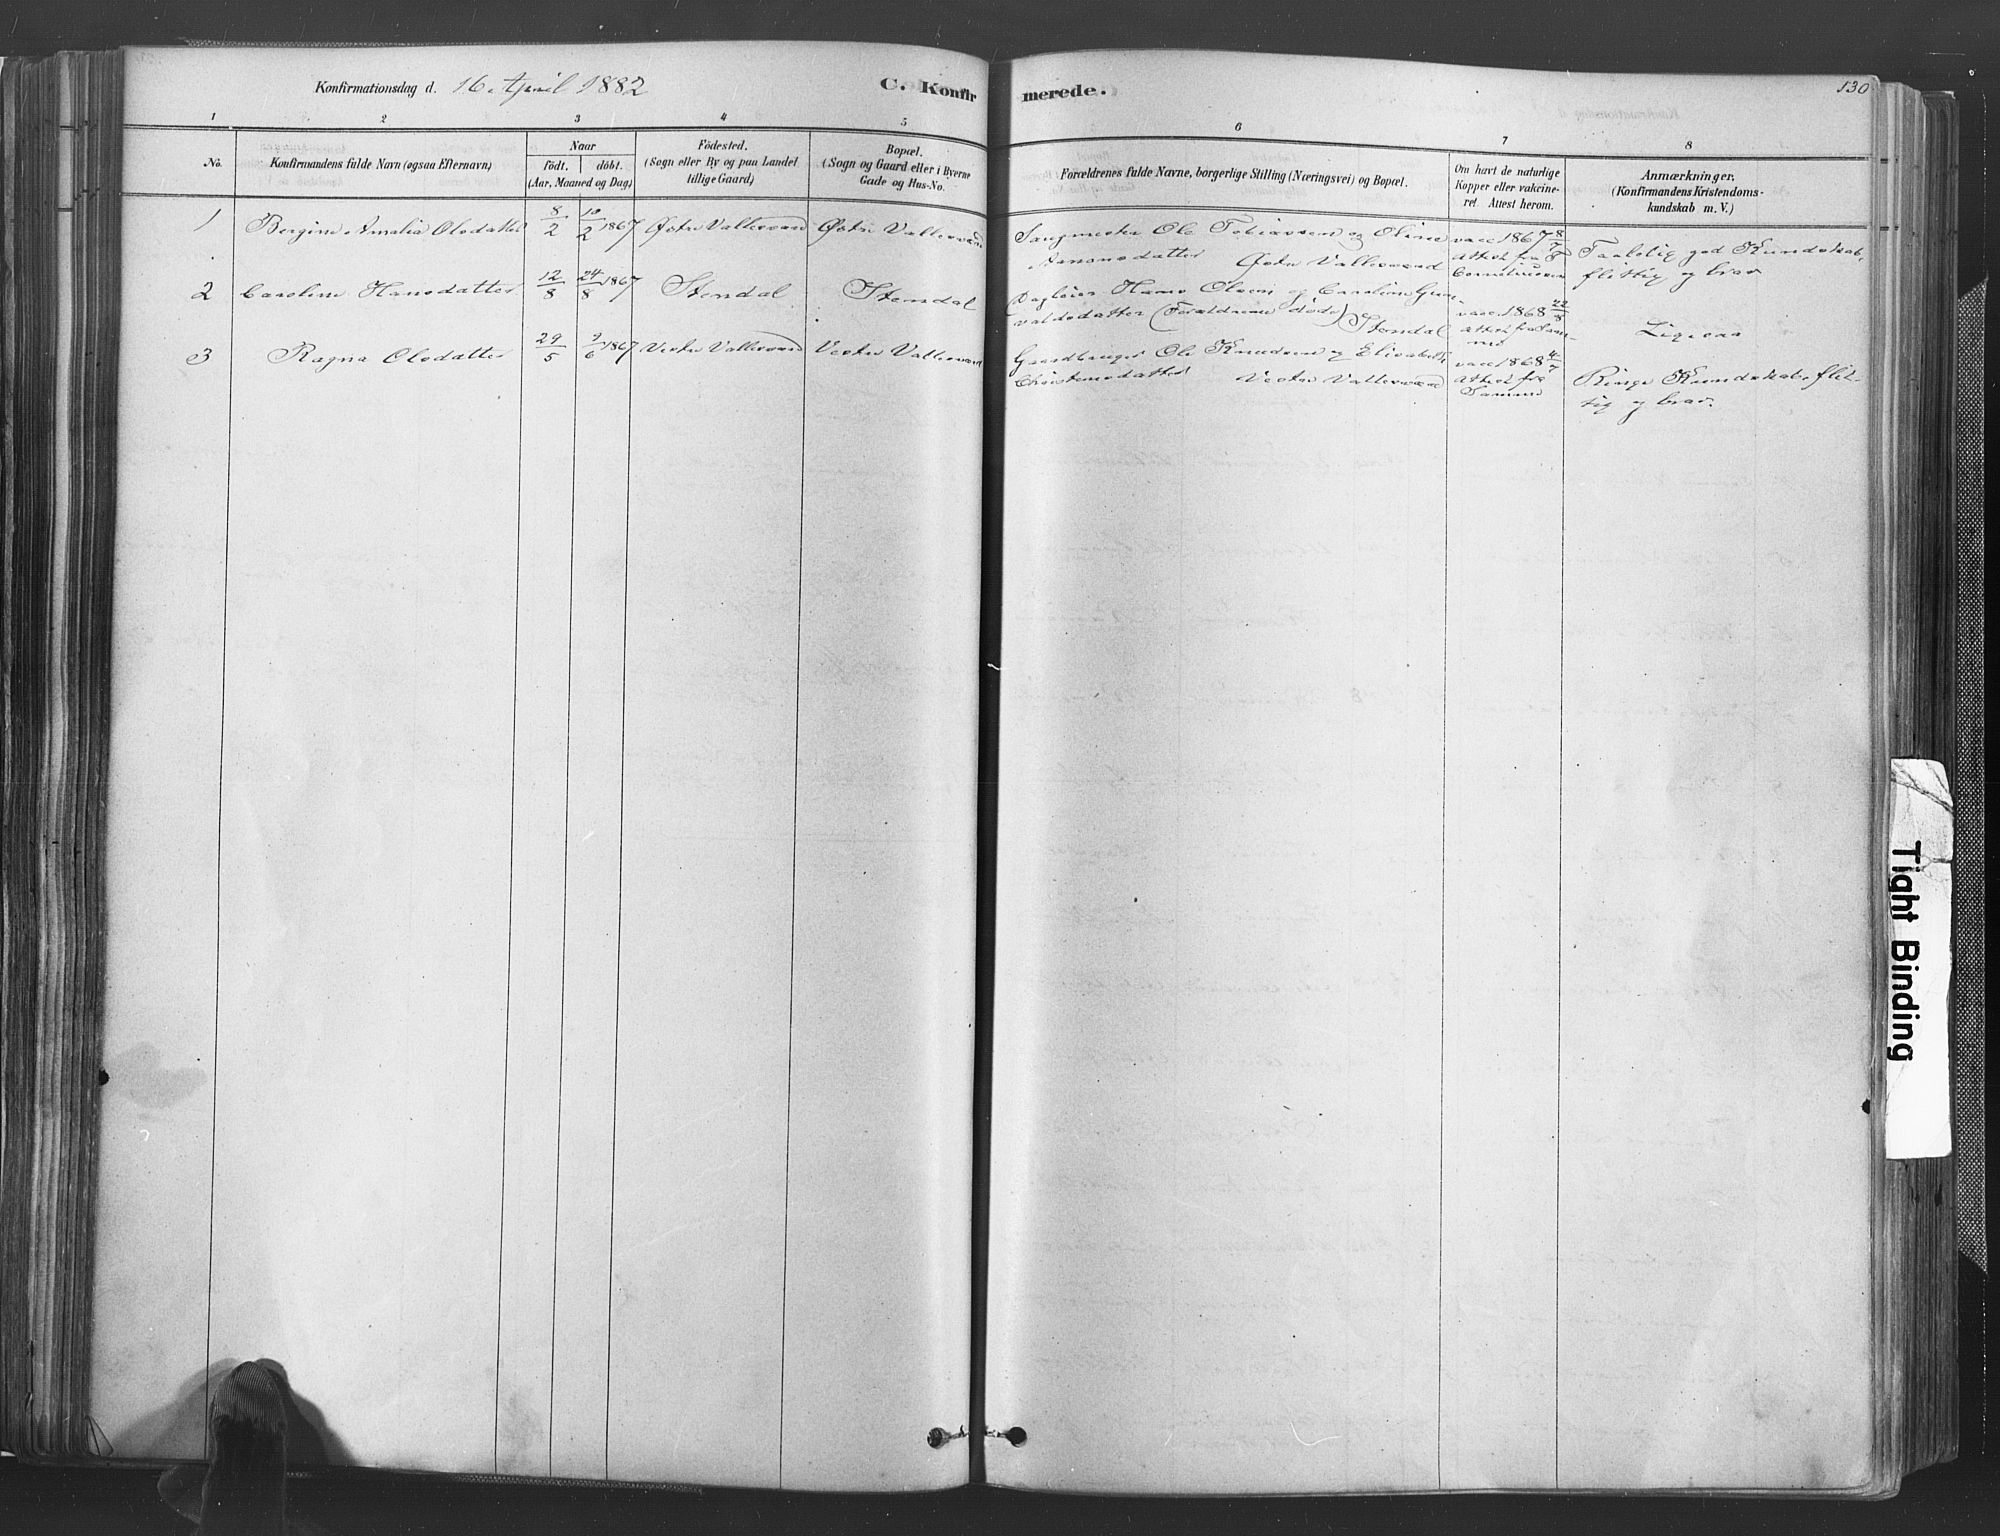 Konfirmationsdag d. 16. April 1882
C. Konfirmerede.
130
1 2 3 4 5 6 7 8
No.
Konfirmandens fulde Navn (ogsaa Efternavn)
Naar
Födt. döbt.
(Aar, Maaned og Dag)
Födested.
(Sogn eller By og paa Landet
tillige Gaard)
Bopæl.
(Sogn og Gaard eller i Byerne
Gade og Hus-No.
Forældrenes fulde Navne, borgerlige Stilling (Næringsvei) og Bopæl.
Om havt de naturlige
Kopper eller vakcine-
ret. Attest herom.
Anmærkninger,
(Konfirmandens Kristendoms-
kundskab m. V.)
1 Bergine Amalia Olsdatter 8/2 10/2 1867 Østre Vallesværd Østre Vallesværd
Sangmester Ole Tobiassen og Oline
Aanonsdatter Østre Vallesværd
vacc 1867 8/7
Attest fra T
Corneliussen
Taalelig god Kundskab,
flittig og brav
2 Caroline Hansdatter 12/8 24/8 1867 Stendal Stendal
Dagleier Hans Olsen og Caroline Gun-
valdsdatter (Forældrene döde) Stendal
vacc 1868 22/8
Attest fra Sam-
me
Ligesaa
3 Ragna Olsdatter 29/5 9/6 1867 Vestre Vallesværd Vestre Vallesværd
Gaardbruger Ole Knudsen og Elisabeth
Christensdatter Vestre Vallesværd
vacc 1868 4/7
Attest fra
Samme
Ringe Kundskab, flit-
tig og brav.
Tight Binding